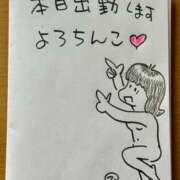 本日出勤します
よろちんこ♥